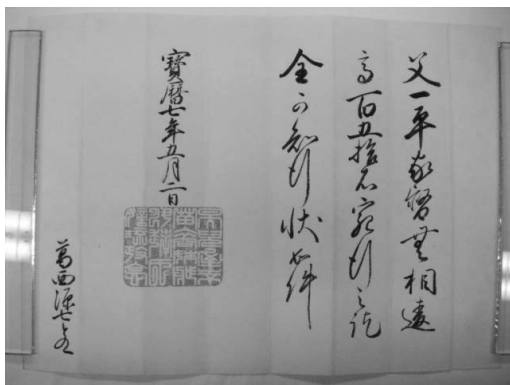 父一平家督無相違
高百五拾石宛行之訖
全可知行状如件
寳暦七年五月二日
葛西源七とのへ